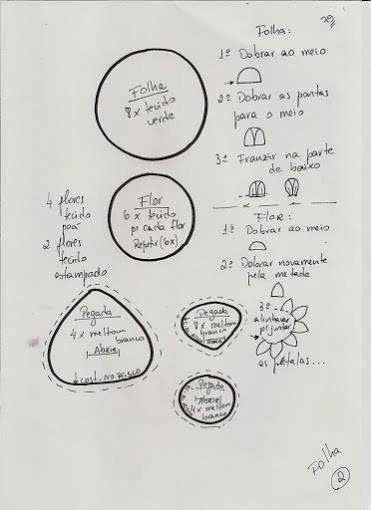 Folha:
1º Dobrar ao meio
2º Dobrar as pontas
para o meio
3º Franzir na parte
de baixo
Folha
8x tecido
verde
4 flores
tecido
poá
2 flores
tecido
estampado
Flor
6x tecido
p/ cada flor
Repetir (6x)
FLOR:
1º Dobrar ao meio
2º Dobrar novamente
pela metade
3º
alinhavar
p/ juntar
as pétalas...
Pegada
4x meltom
branco
Abrir
cost. no risco
Pegada
8x meltom
branco
Pegada
Abrir
4x meltom
branco
Folha
2